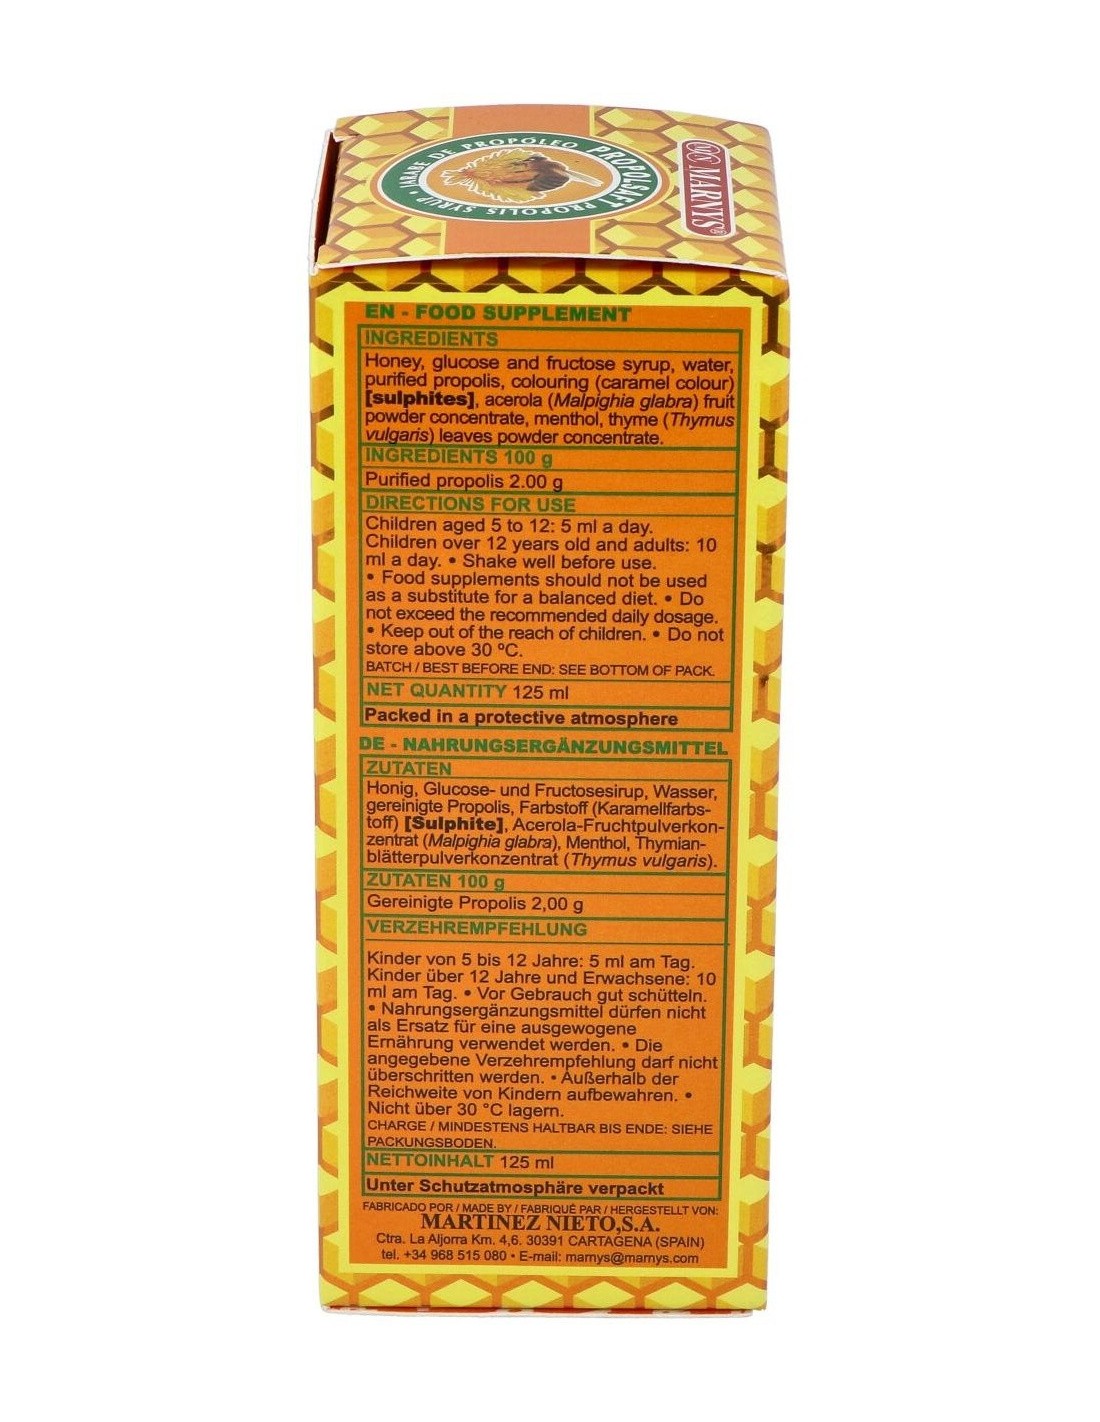 JARABE DE PROPÓLEO PROPOLSAFT PROPOLIS SYRUP
MARNYS®
EN - FOOD SUPPLEMENT
INGREDIENTS
Honey, glucose and fructose syrup, water,
purified propolis, colouring (caramel colour)
[sulphites], acerola (Malpighia glabra) fruit
powder concentrate, menthol, thyme (Thymus
vulgaris) leaves powder concentrate.
INGREDIENTS 100 g
Purified propolis 2.00 g
DIRECTIONS FOR USE
Children aged 5 to 12: 5 ml a day.
Children over 12 years old and adults: 10
ml a day. • Shake well before use.
• Food supplements should not be used
as a substitute for a balanced diet. • Do
not exceed the recommended daily dosage.
• Keep out of the reach of children. • Do not
store above 30 ºC.
BATCH / BEST BEFORE END: SEE BOTTOM OF PACK.
NET QUANTITY 125 ml
Packed in a protective atmosphere
DE - NAHRUNGSERGÄNZUNGSMITTEL
ZUTATEN
Honig, Glucose- und Fructosesirup, Wasser,
gereinigte Propolis, Farbstoff (Karamellfarbs-
toff) [Sulphite], Acerola-Fruchtpulverkon-
zentrat (Malpighia glabra), Menthol, Thymian-
blätterpulverkonzentrat (Thymus vulgaris).
ZUTATEN 100 g
Gereinigte Propolis 2,00 g
VERZEHREMPFEHLUNG
Kinder von 5 bis 12 Jahre: 5 ml am Tag.
Kinder über 12 Jahre und Erwachsene: 10
ml am Tag. • Vor Gebrauch gut schütteln.
• Nahrungsergänzungsmittel dürfen nicht
als Ersatz für eine ausgewogene
Ernährung verwendet werden. • Die
angegebene Verzehrempfehlung darf nicht
überschritten werden. • Außerhalb der
Reichweite von Kindern aufbewahren. •
Nicht über 30 °C lagern.
CHARGE / MINDESTENS HALTBAR BIS ENDE: SIEHE
PACKUNGSBODEN.
NETTOINHALT 125 ml
Unter Schutzatmosphäre verpackt
FABRICADO POR / MADE BY / FABRIQUÉ PAR / HERGESTELLT VON:
MARTINEZ NIETO,S.A.
Ctra. La Aljorra Km. 4,6. 30391 CARTAGENA (SPAIN)
tel. +34 968 515 080 • E-mail: marnys@marnys.com